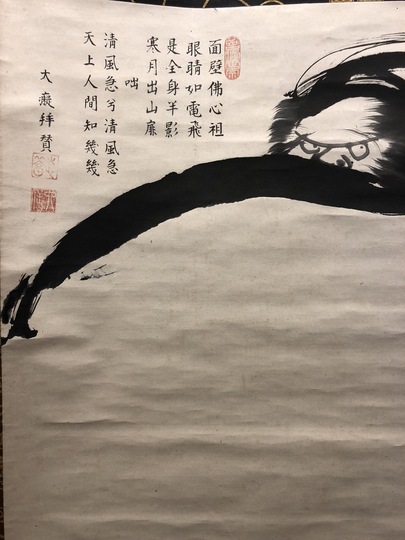 面壁佛心祖
眼睛如電飛
是全身半影
寒月出山扉
咄
清風急兮清風急
天上人間知幾幾
大癡拝賛